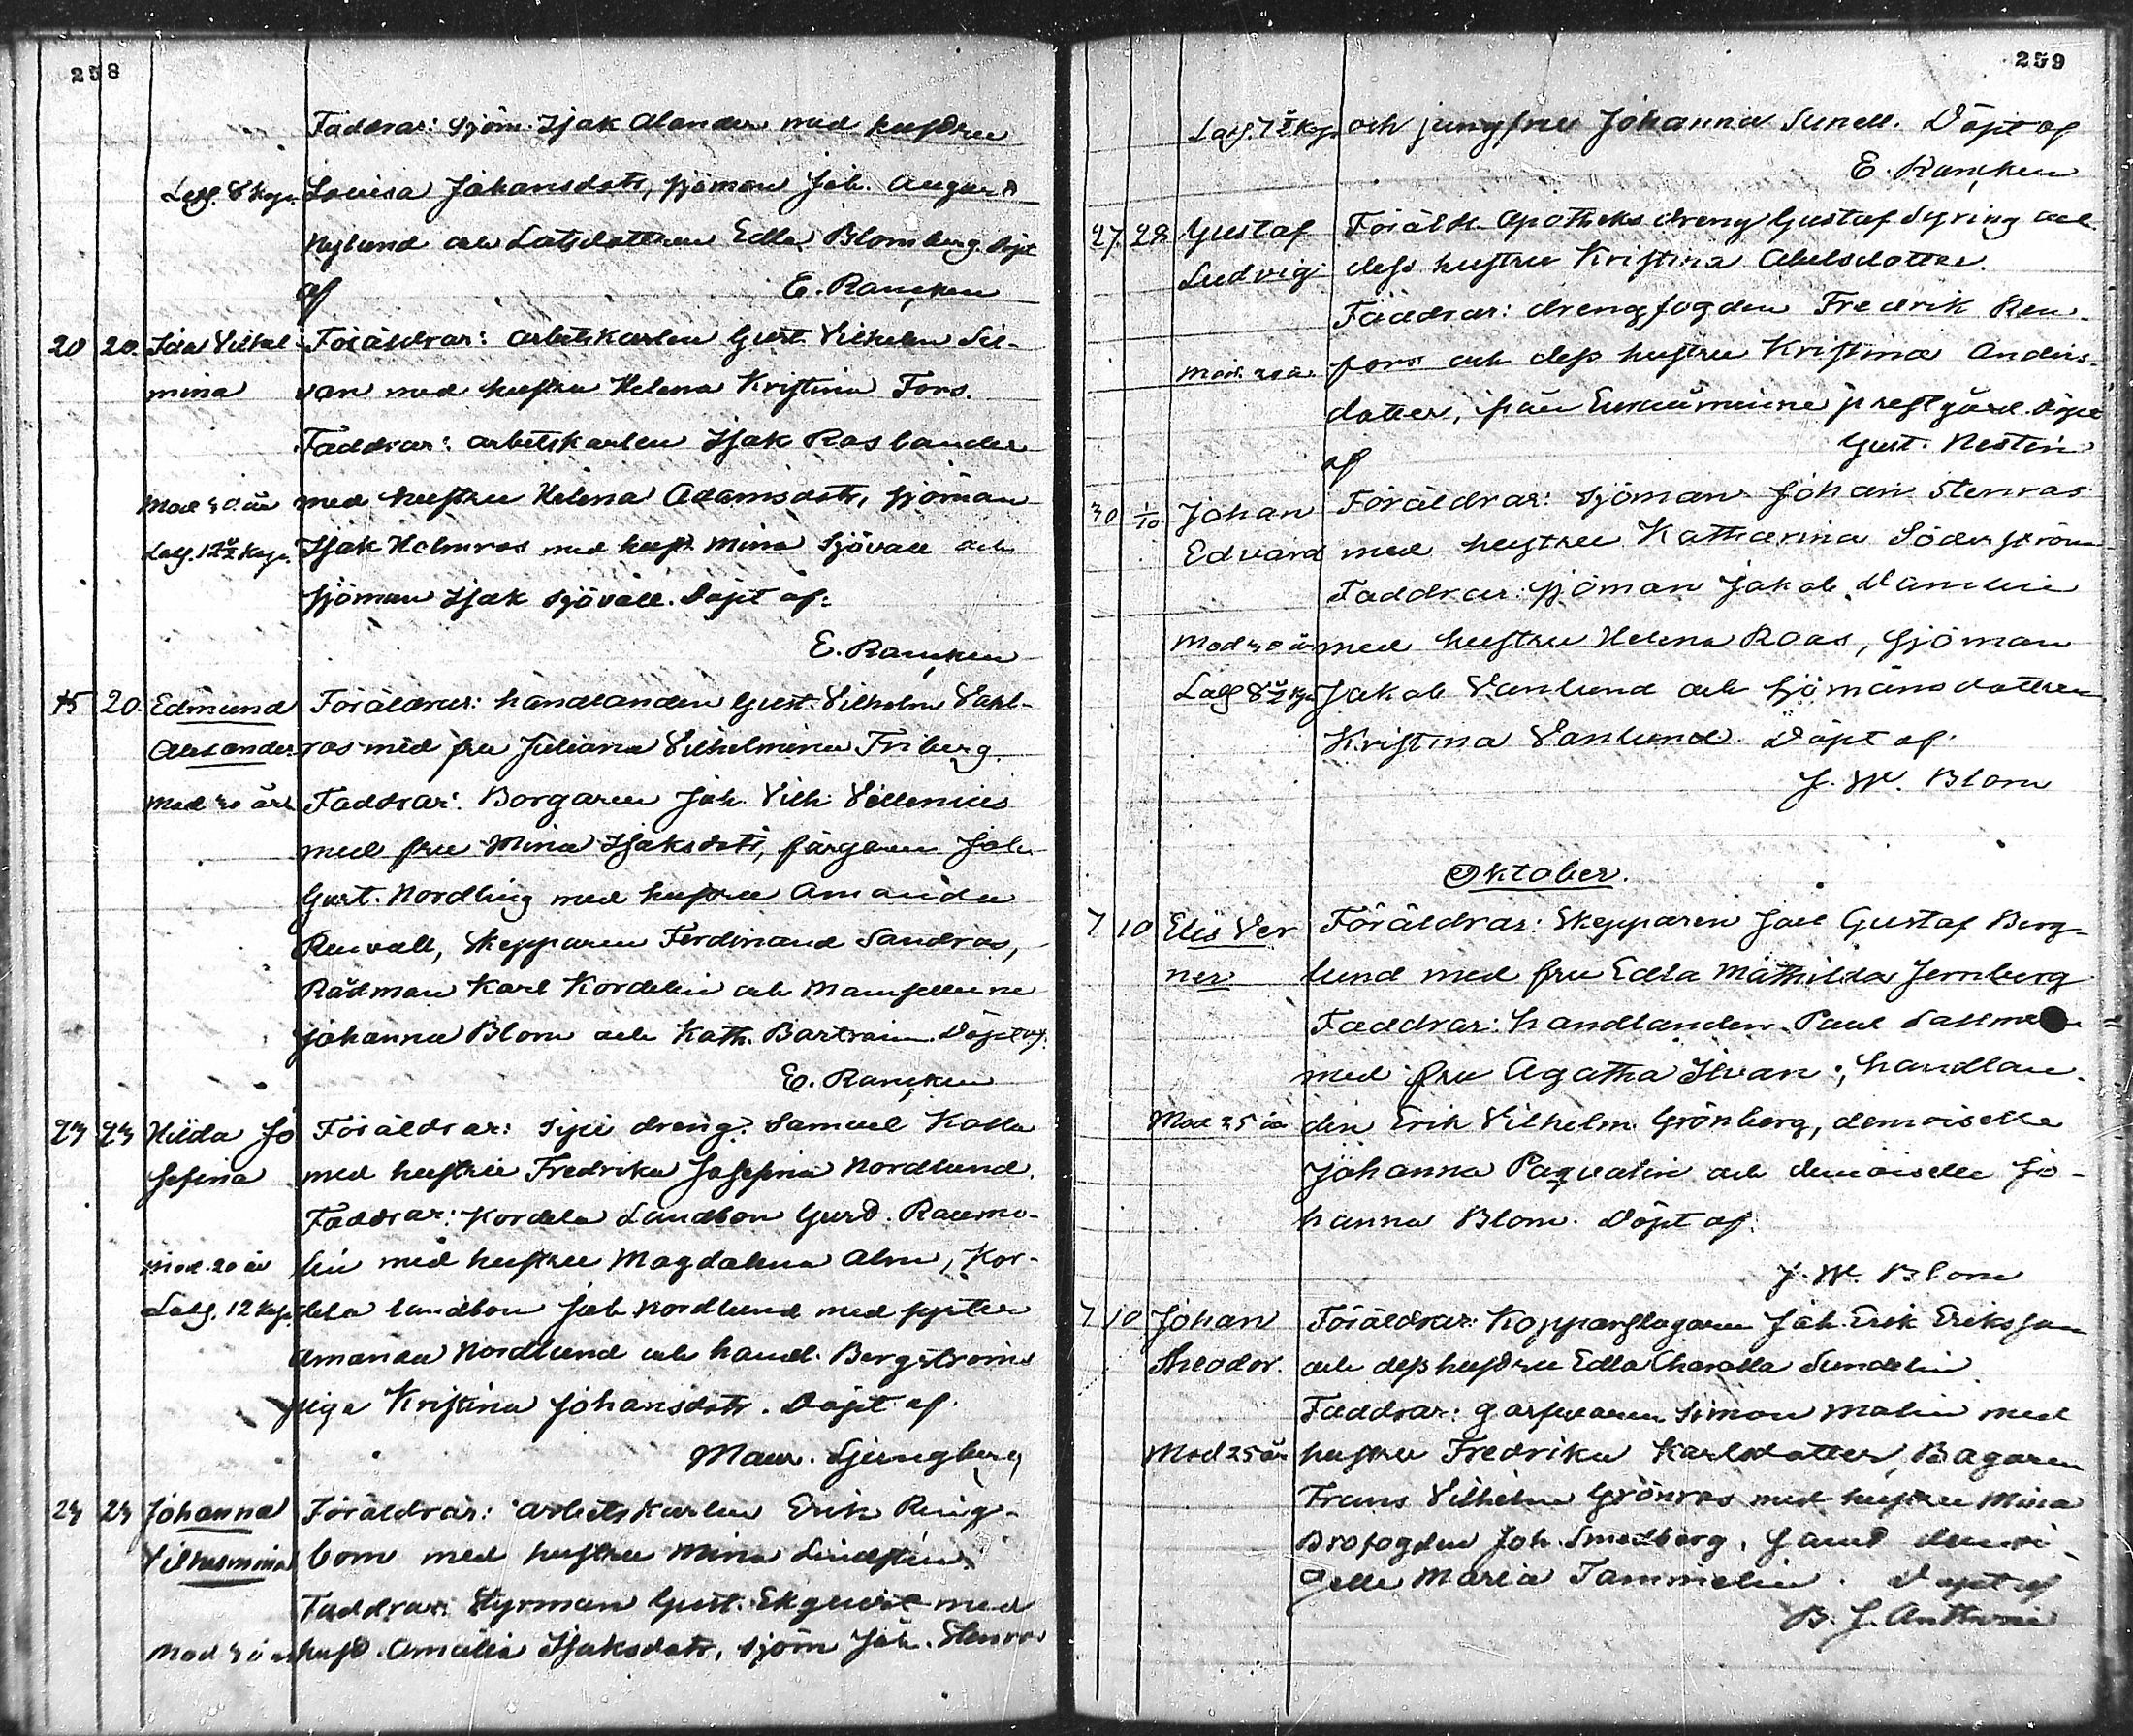 258
Faddrar: Sjöm. Isak Alander med hustru
Lagf. 8 kop. Lovisa Johansdotr, sjöman Joh. August
Nylund och Lotsdottren Edla Blomberg. Döpt
af E. Rancken
20 20. Ida Vilhel- Föräldrar: arbetskarlen Gust. Vilhelm Sil-
mina van med hustru Helena Kristina Fors.
Faddrar: arbetskarlen Isak Roslander
Mod. 30 år med hustru Helena Adamsdotr, sjöman
Lagf. 12½ kop. Isak Holmros med hust. Mina Sjövall och
sjöman Isak Sjövall. Döpt af:
E. Rancken
15 20. Edmund Föräldrar: handlanden Gust. Vilhelm Vahl-
Alexander ros med fru Juliana Vilhelmina Friberg.
Mod. 30 år Faddrar: Borgaren Joh. Vilh. Villenius
med fru Mina Isaksdotr, färgaren Joh.
Gust. Nordling med hustru Amanda
Renvall, Skepparen Ferdinand Sandros,
Rådman Karl Kordelin och Mamsellerne
Johanna Blom och Kath. Bartram. Döpt af:
E. Rancken
23 23 Hilda Jo Föräldrar: dreng. Samuel Kalla
sefina med hustru Fredrika Josefina Nordlund.
Faddrar: Kordela Landbon Gust. Raumo-
Mod. 20 år lin med hustru Magdalena Alm, Kor-
Lagf. 12 kop. dela landbon Joh Nordlund med syster
Amanda Nordlund och handl. Bergströms
piga Kristina Johansdotr. Döpt af.
Maur. Ljungberg
23 23 Johanna Föräldrar: arbetskarlen Erik Ring-
Vilhelmina bom med hustru Mina Lindsten.
Faddrar: Styrman Gust. Ekqvist med
Mod 30 år hust. Amalia Isaksdotr, sjöm Joh. Stenros
259
Lagf. 7½ kop. och jungfru Johanna Sunell. Döpt af
E. Rancken
27 28 Gustaf Föräldr. Apotheks dreng Gustaf Syring och
Ludvig dess hustru Kristina Abelsdotter.
Faddrar: drengfogden Fredrik Ren-
Mod. fors och dess hustru Kristina Anders-
dotter, från Euraåminne prestgård. Döpt
af Gust. Nestin
30 1/10 Johan Föräldrar: Sjöman Johan Stenros
Edvard med hustru Katharina Söderström
Faddrar: sjöman Jakob Vanlin
Mod 30 år med hustru Helena Roos, Sjöman
Lagf 8½ kop Jakob Vanlund och sjömansdottren
Kristina Vanlund. Döpt af.
J. W. Blom
Oktober.
7 10 Elis Ver Föräldrar: Skepparen Joel Gustaf Berg-
ner lund med fru Edla Mathilda Jernberg
Faddrar: handlanden Paul
med fru Agatha Ilvan, handlan-
Mod 25 år den Erik Vilhelm Grönberg, demoiselle
Johanna Paqvalin och demoiselle Jo-
hanna Blom. Döpt af.
J. W. Blom
7 10 Johan Föräldrar: Kopparslagaren Joh. Erik Eriksson
Theodor. och dess hustru Edla Charolla Sundelin
Faddrar: garfvaren Simon Malin med
Mod 25 år hustru Fredrika Karlsdotter, Bagaren
Frans Vilhelm Grönros med hustru Mina
Brofogden Joh. Smedberg, samt demoi-
selle Maria Tammelin. Döpt af
B. J. Anthoni